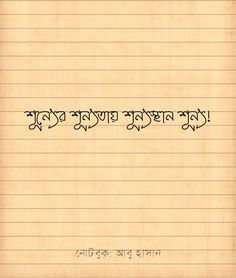 শূন্যের শূন্যতায় শূন্যস্থান শূন্য!
নোটবুক: আবু হাসান